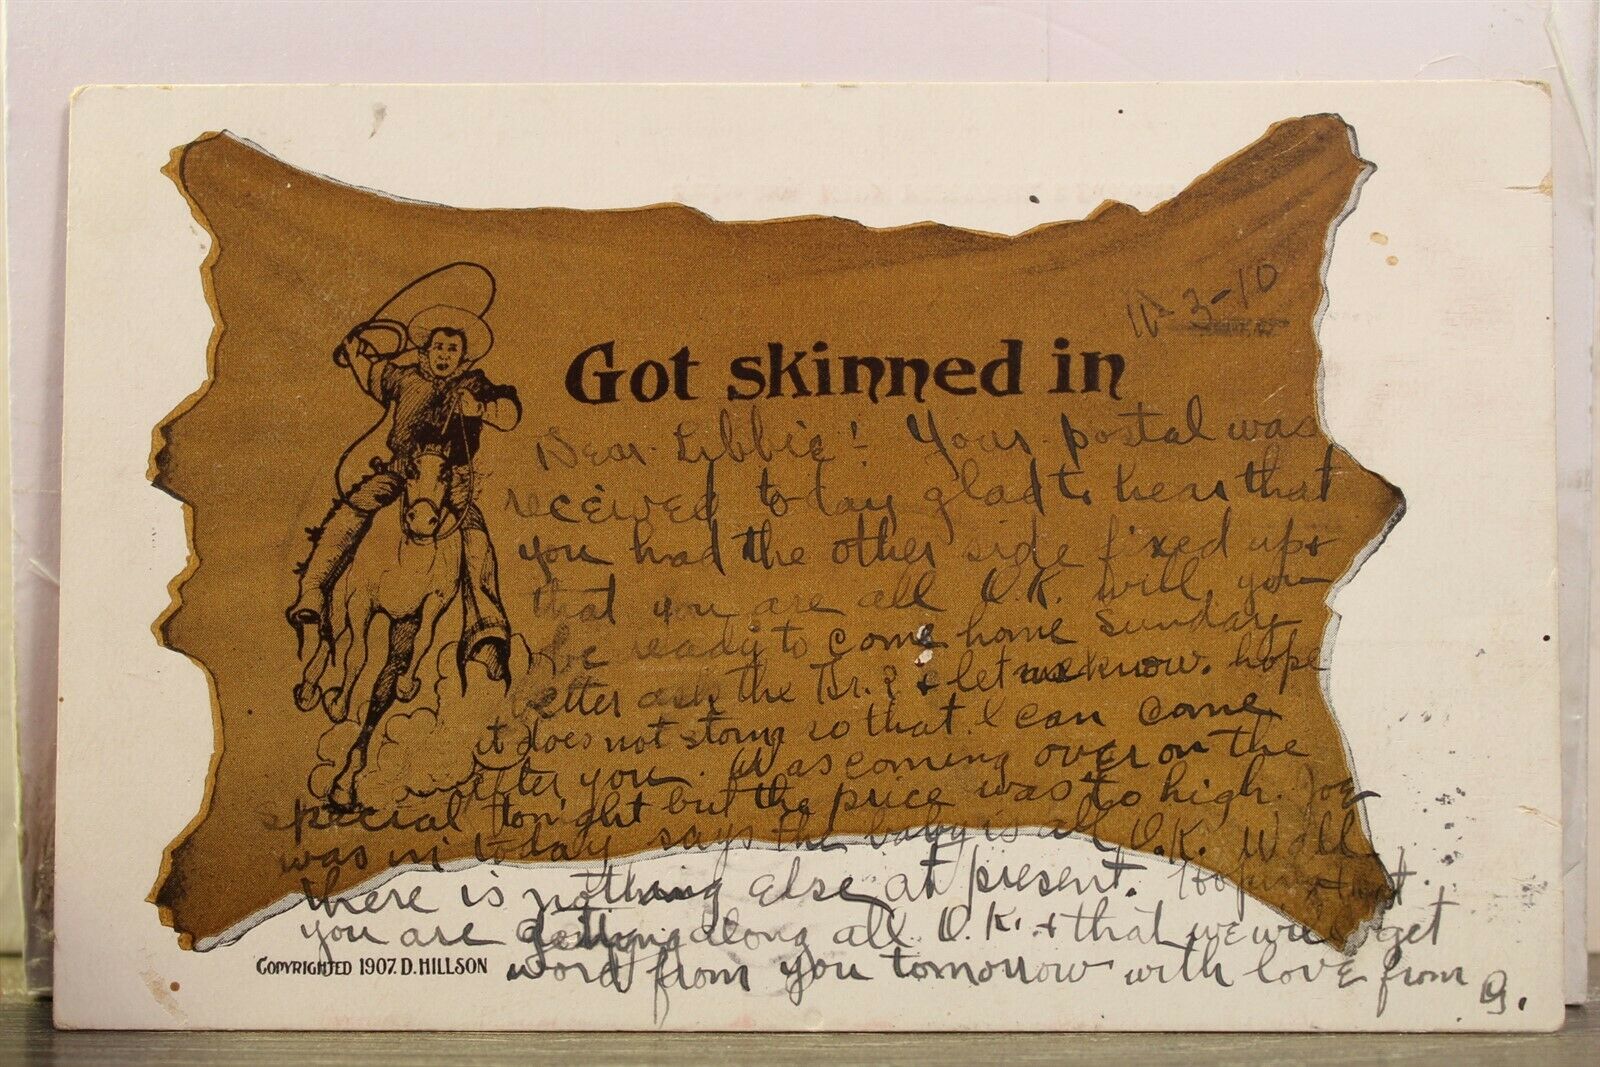 11-3-10
Got skinned in
Dear Libbie! Your postal was
received today glad to hear that
you had the other side fixed up +
that you are all O.K. will you
be ready to come home Sunday
better ask the Dr.? + let me know. hope
it does not storm so that I can come
after you. Was coming over on the
special tonight but the price was to high. Joe
was in today says the baby is all O.K. Well
there is nothing else at present. Hoping that
you are getting along all O.K. + that we will get
word from you tomorrow with love from G.
COPYRIGHTED 1907. D. HILLSON